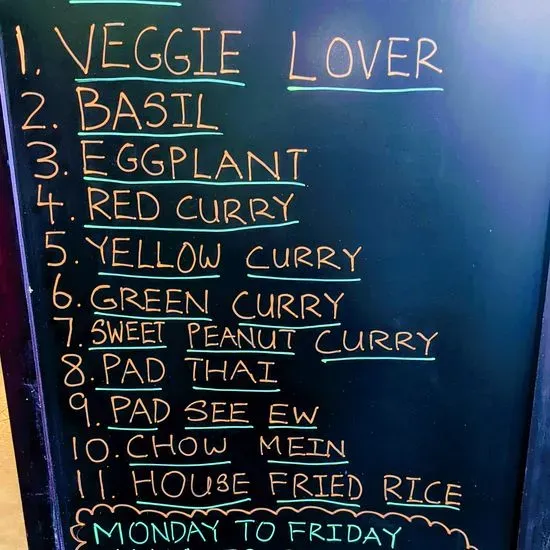 1. VEGGIE LOVER
2. BASIL
3. EGGPLANT
4. RED CURRY
5. YELLOW CURRY
6. GREEN CURRY
7. SWEET PEANUT CURRY
8. PAD THAI
9. PAD SEE EW
10. CHOW MEIN
11. HOUSE FRIED RICE
MONDAY TO FRIDAY